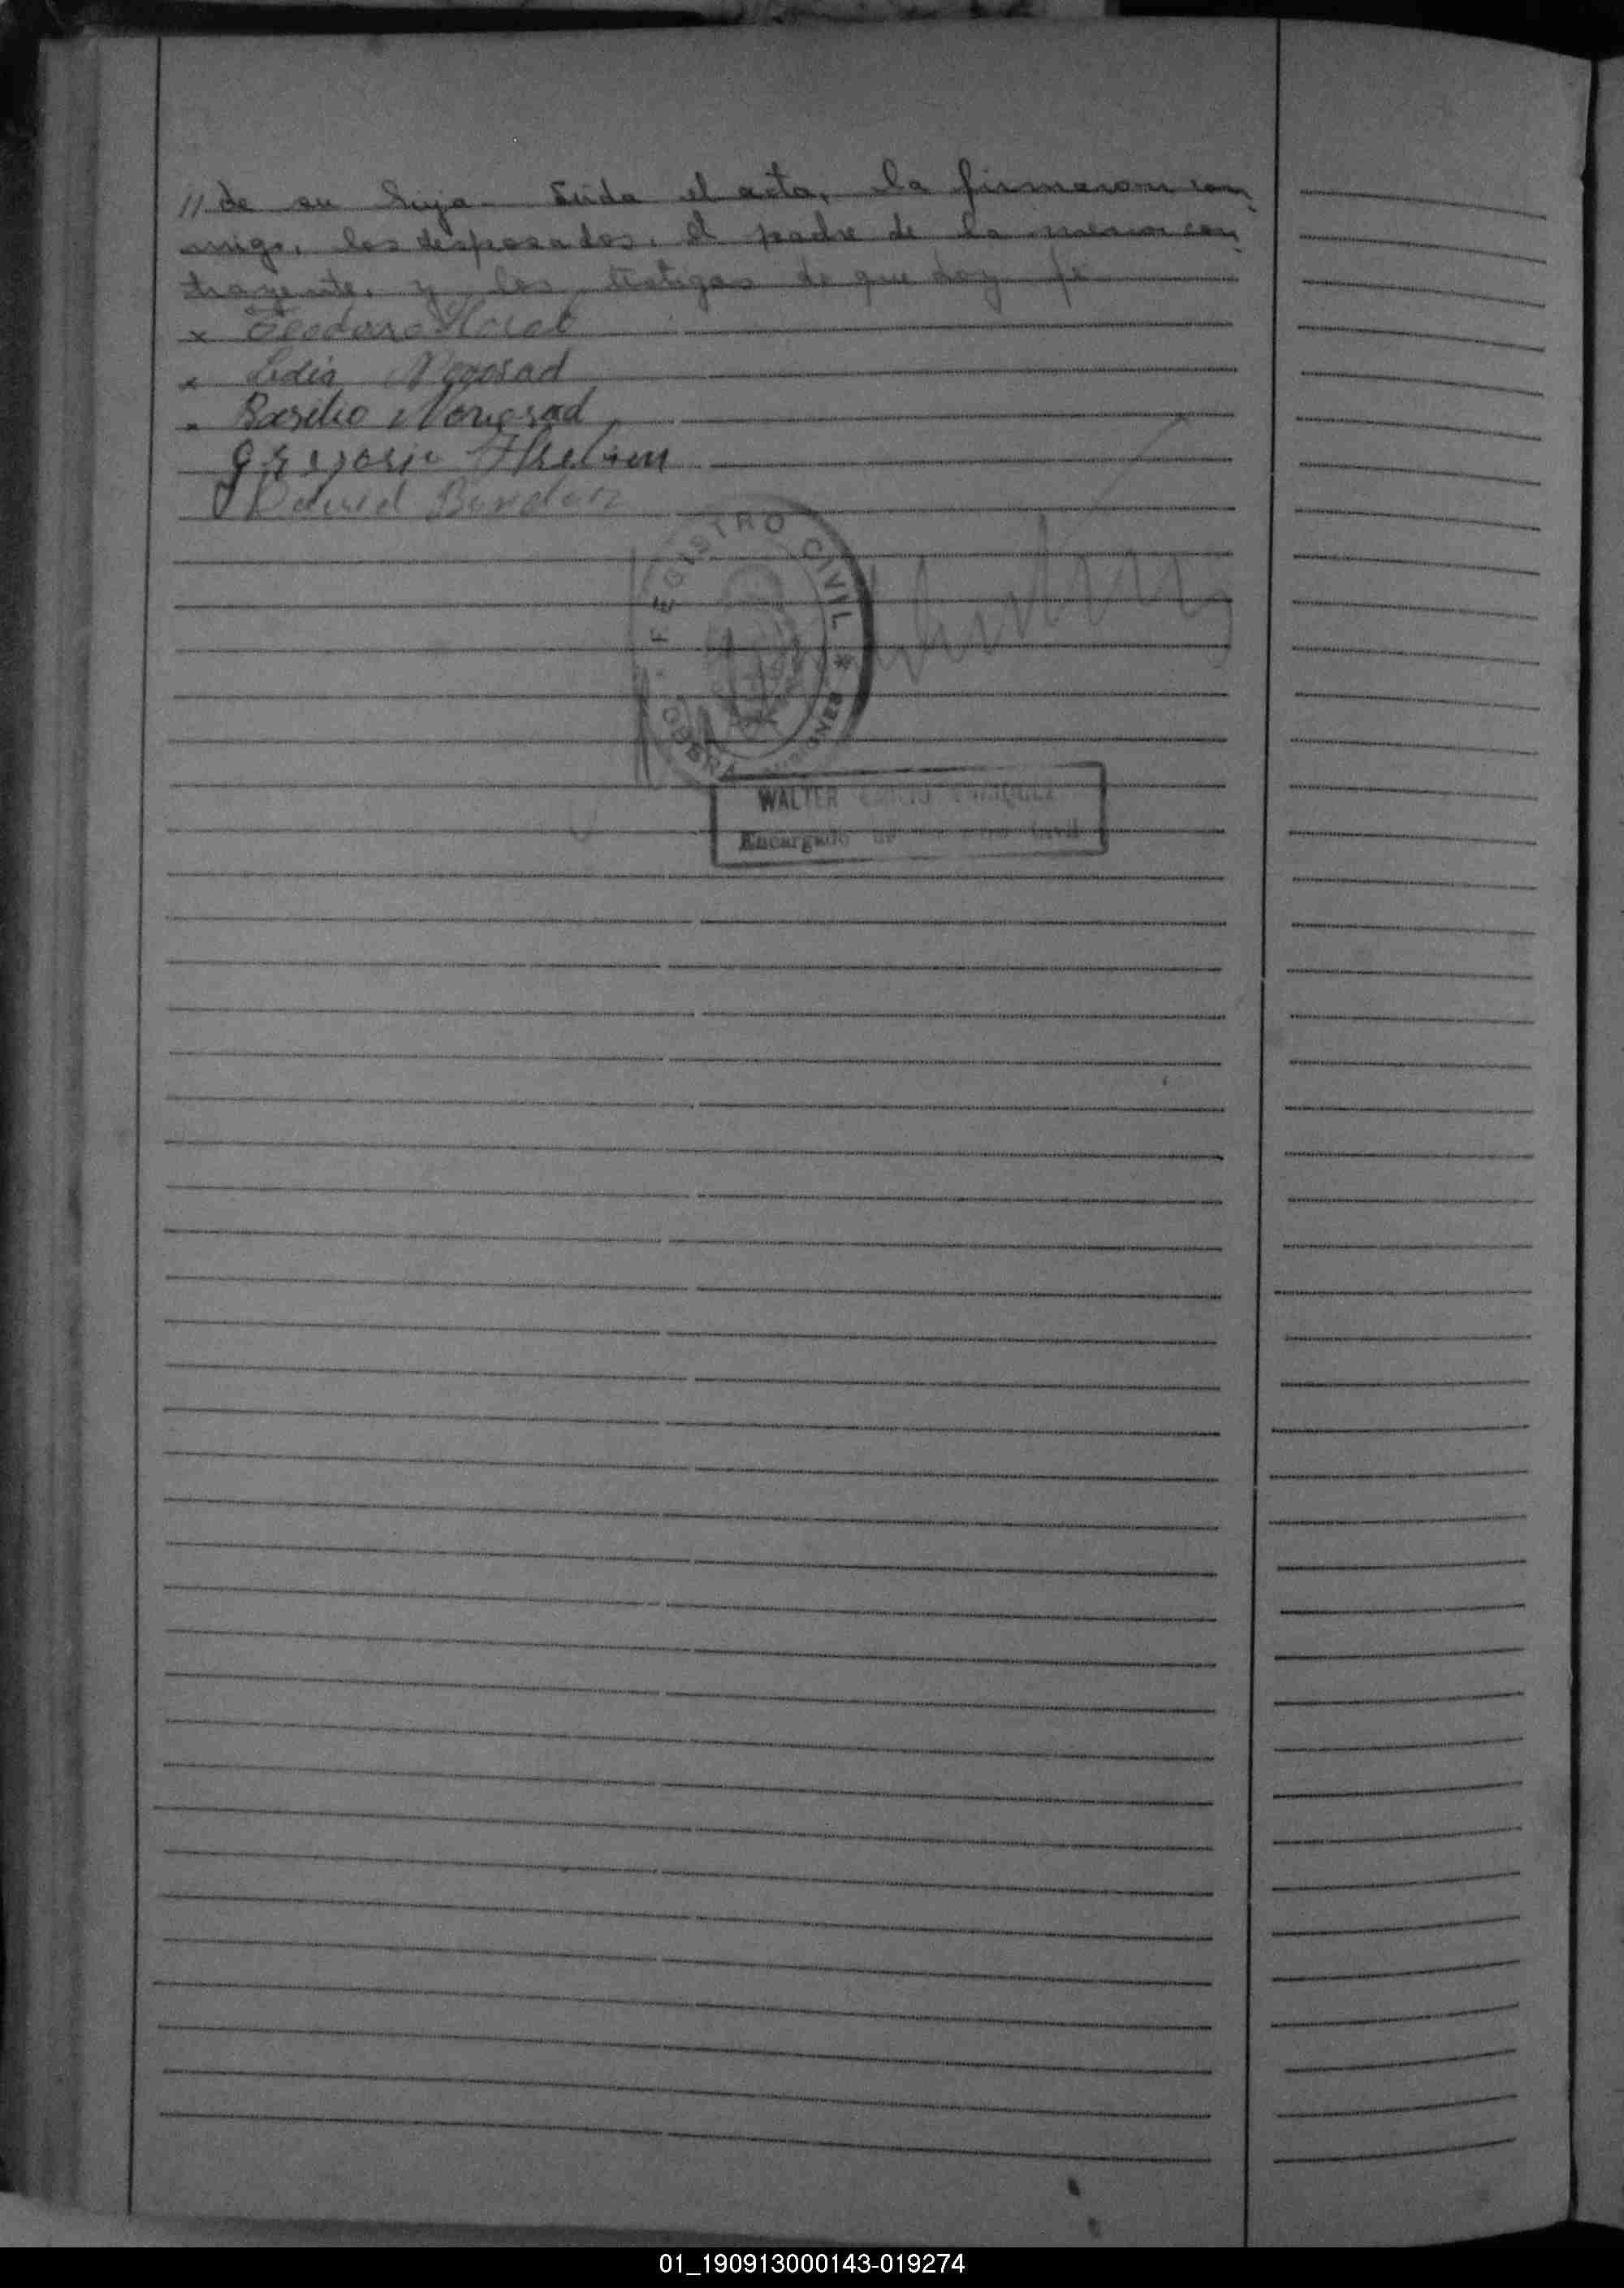 // de su hija. Leída el acta, la firmaron con,,
migo, los desposados, el padre de la menor con,,
trayente, y los testigos de que doy fe
x Teodoro
x Lidia Nowosad
x Basilio Nowosad
Gregorio
David Bondar
REGISTRO CIVIL * OBERA MISIONES
WALTER
Encargado
01_190913000143-019274